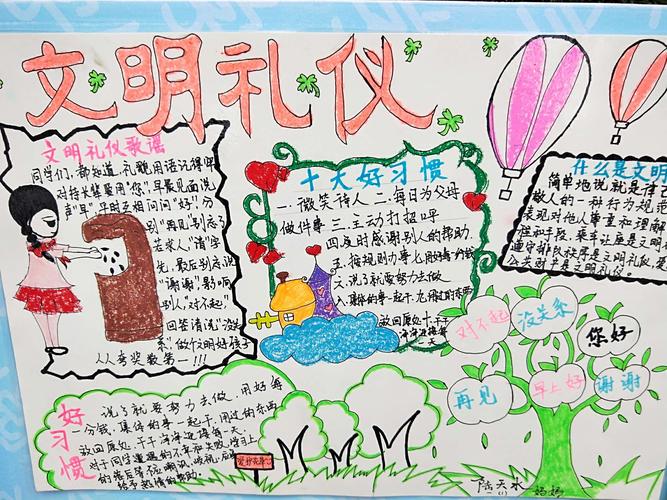 文明礼仪
文明礼仪歌谣
同学们,都知道,礼貌用语记得牢
对待长辈要用"您",早晨见面说
声"早",平时互相问问"好",分
别"再见"别忘了
若求人"请"字
先,最后别忘说
"谢谢",影响
别人"对不起",
回答请流"没关
系",做个文明好孩子
人人夸奖数第一!!!
十大好习惯
一.微笑待人 二.每日为父母
做件事 三.主动打招呼
四.及时感谢别人的帮助.
五.按规则办事
六.说了就要努力去做.
八.集体的事一起干.九.用过的东西
放回原处.十.干干
什么是文明
简单地说就是律己
敬人的一种行为规范
表现对他人尊重和理解
和手段,乘车让座是文明
遵守排队秩序是文明礼仪,爱
公共财共是文明礼仪。
对不起
没关系
您好
再见
早上好
谢谢
好习惯
说了就要努力去做.用好每
一分钱,集体的事一起干,用过的东西
放回原处.干干净净迎接每一天
对于同学遭遇的不幸和失败,
陆天水